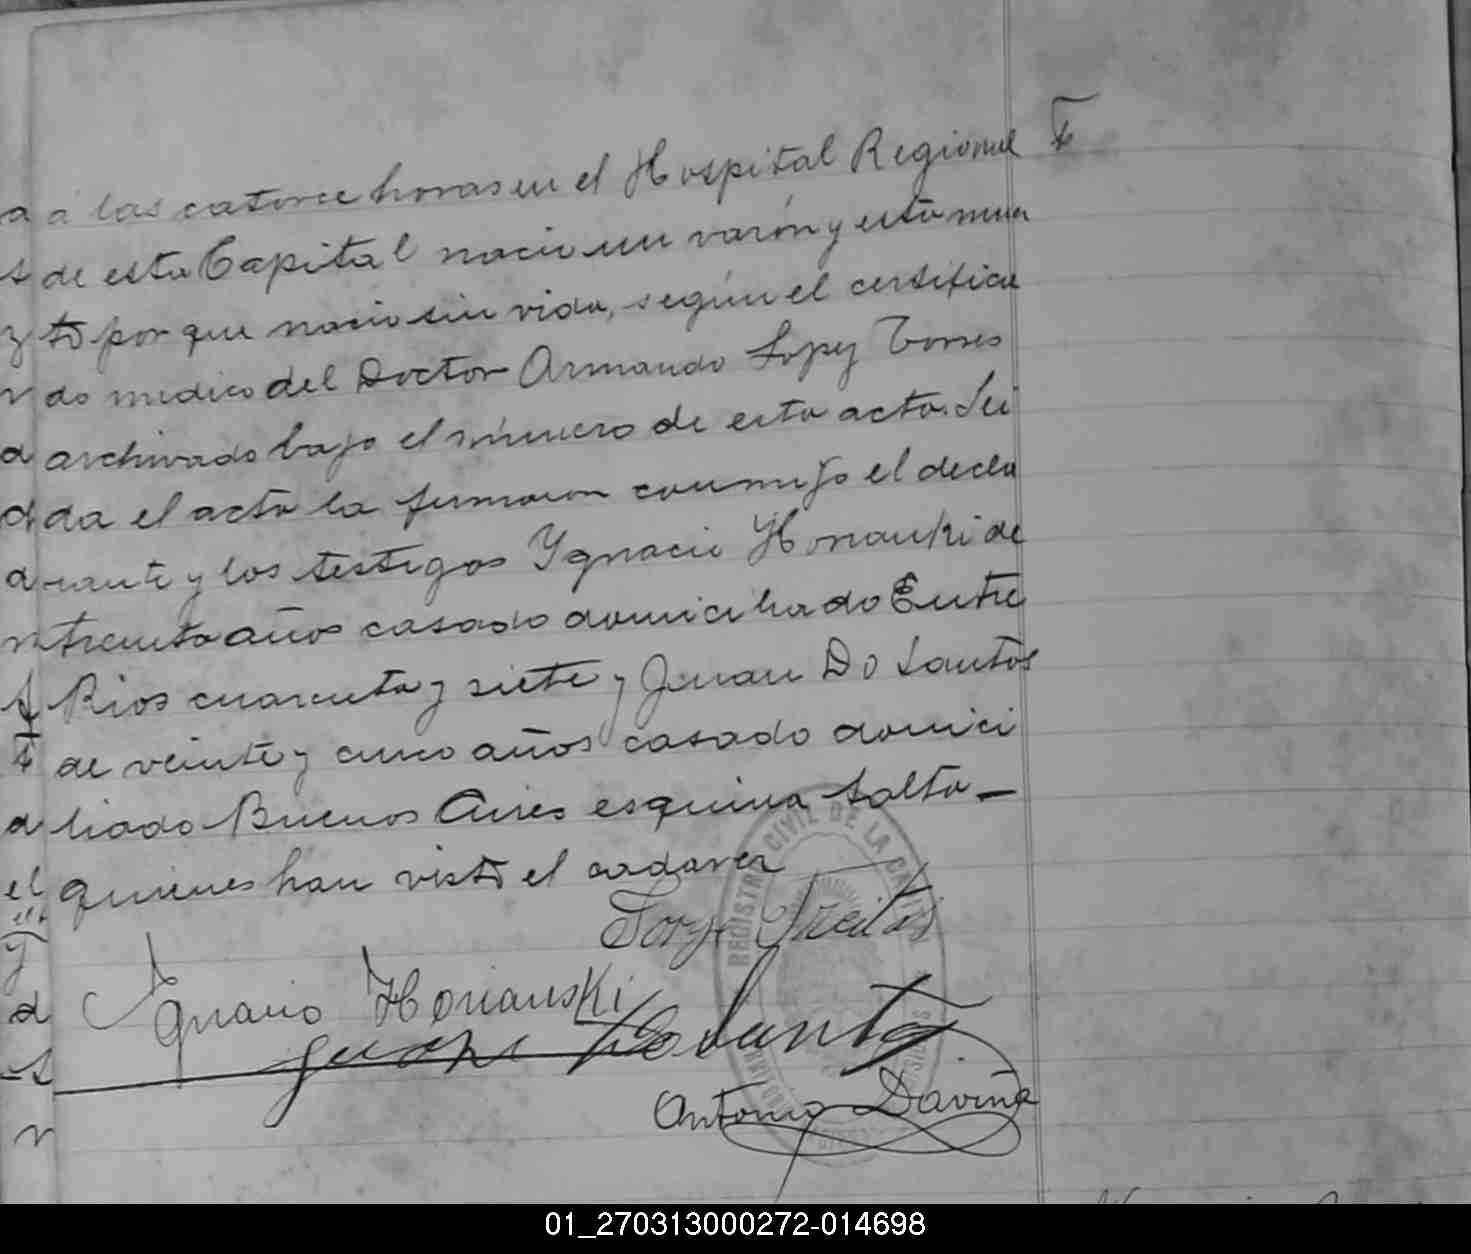 á las catorce horas en el Hospital Regional
de esta Capital nacio un varón y esta muer
to por que nacio sin vida, según el certifica
do medico del Doctor Armando Lopez Torres
archivado bajo el número de esta acta. Lei
da el acta la firmaron conmigo el decla
rante y los testigos Ygnacio Honanki de
treinta años casado domiciliado Entre
Rios cuarenta y siete y Juan Do Santos
de veinte y cinco años casado domici
liado Buenos Aires esquina Salta
quienes han visto el cadaver
REGISTRO CIVIL DE LA
Jorge Freitas
Ignacio Honanski
Juan Do Santos
Antonio Daviña
01_270313000272-014698